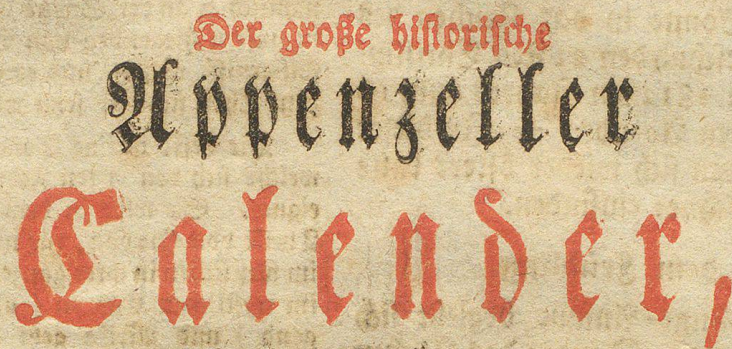 Der große hiſtoriſche
Appenzeller
Calender,